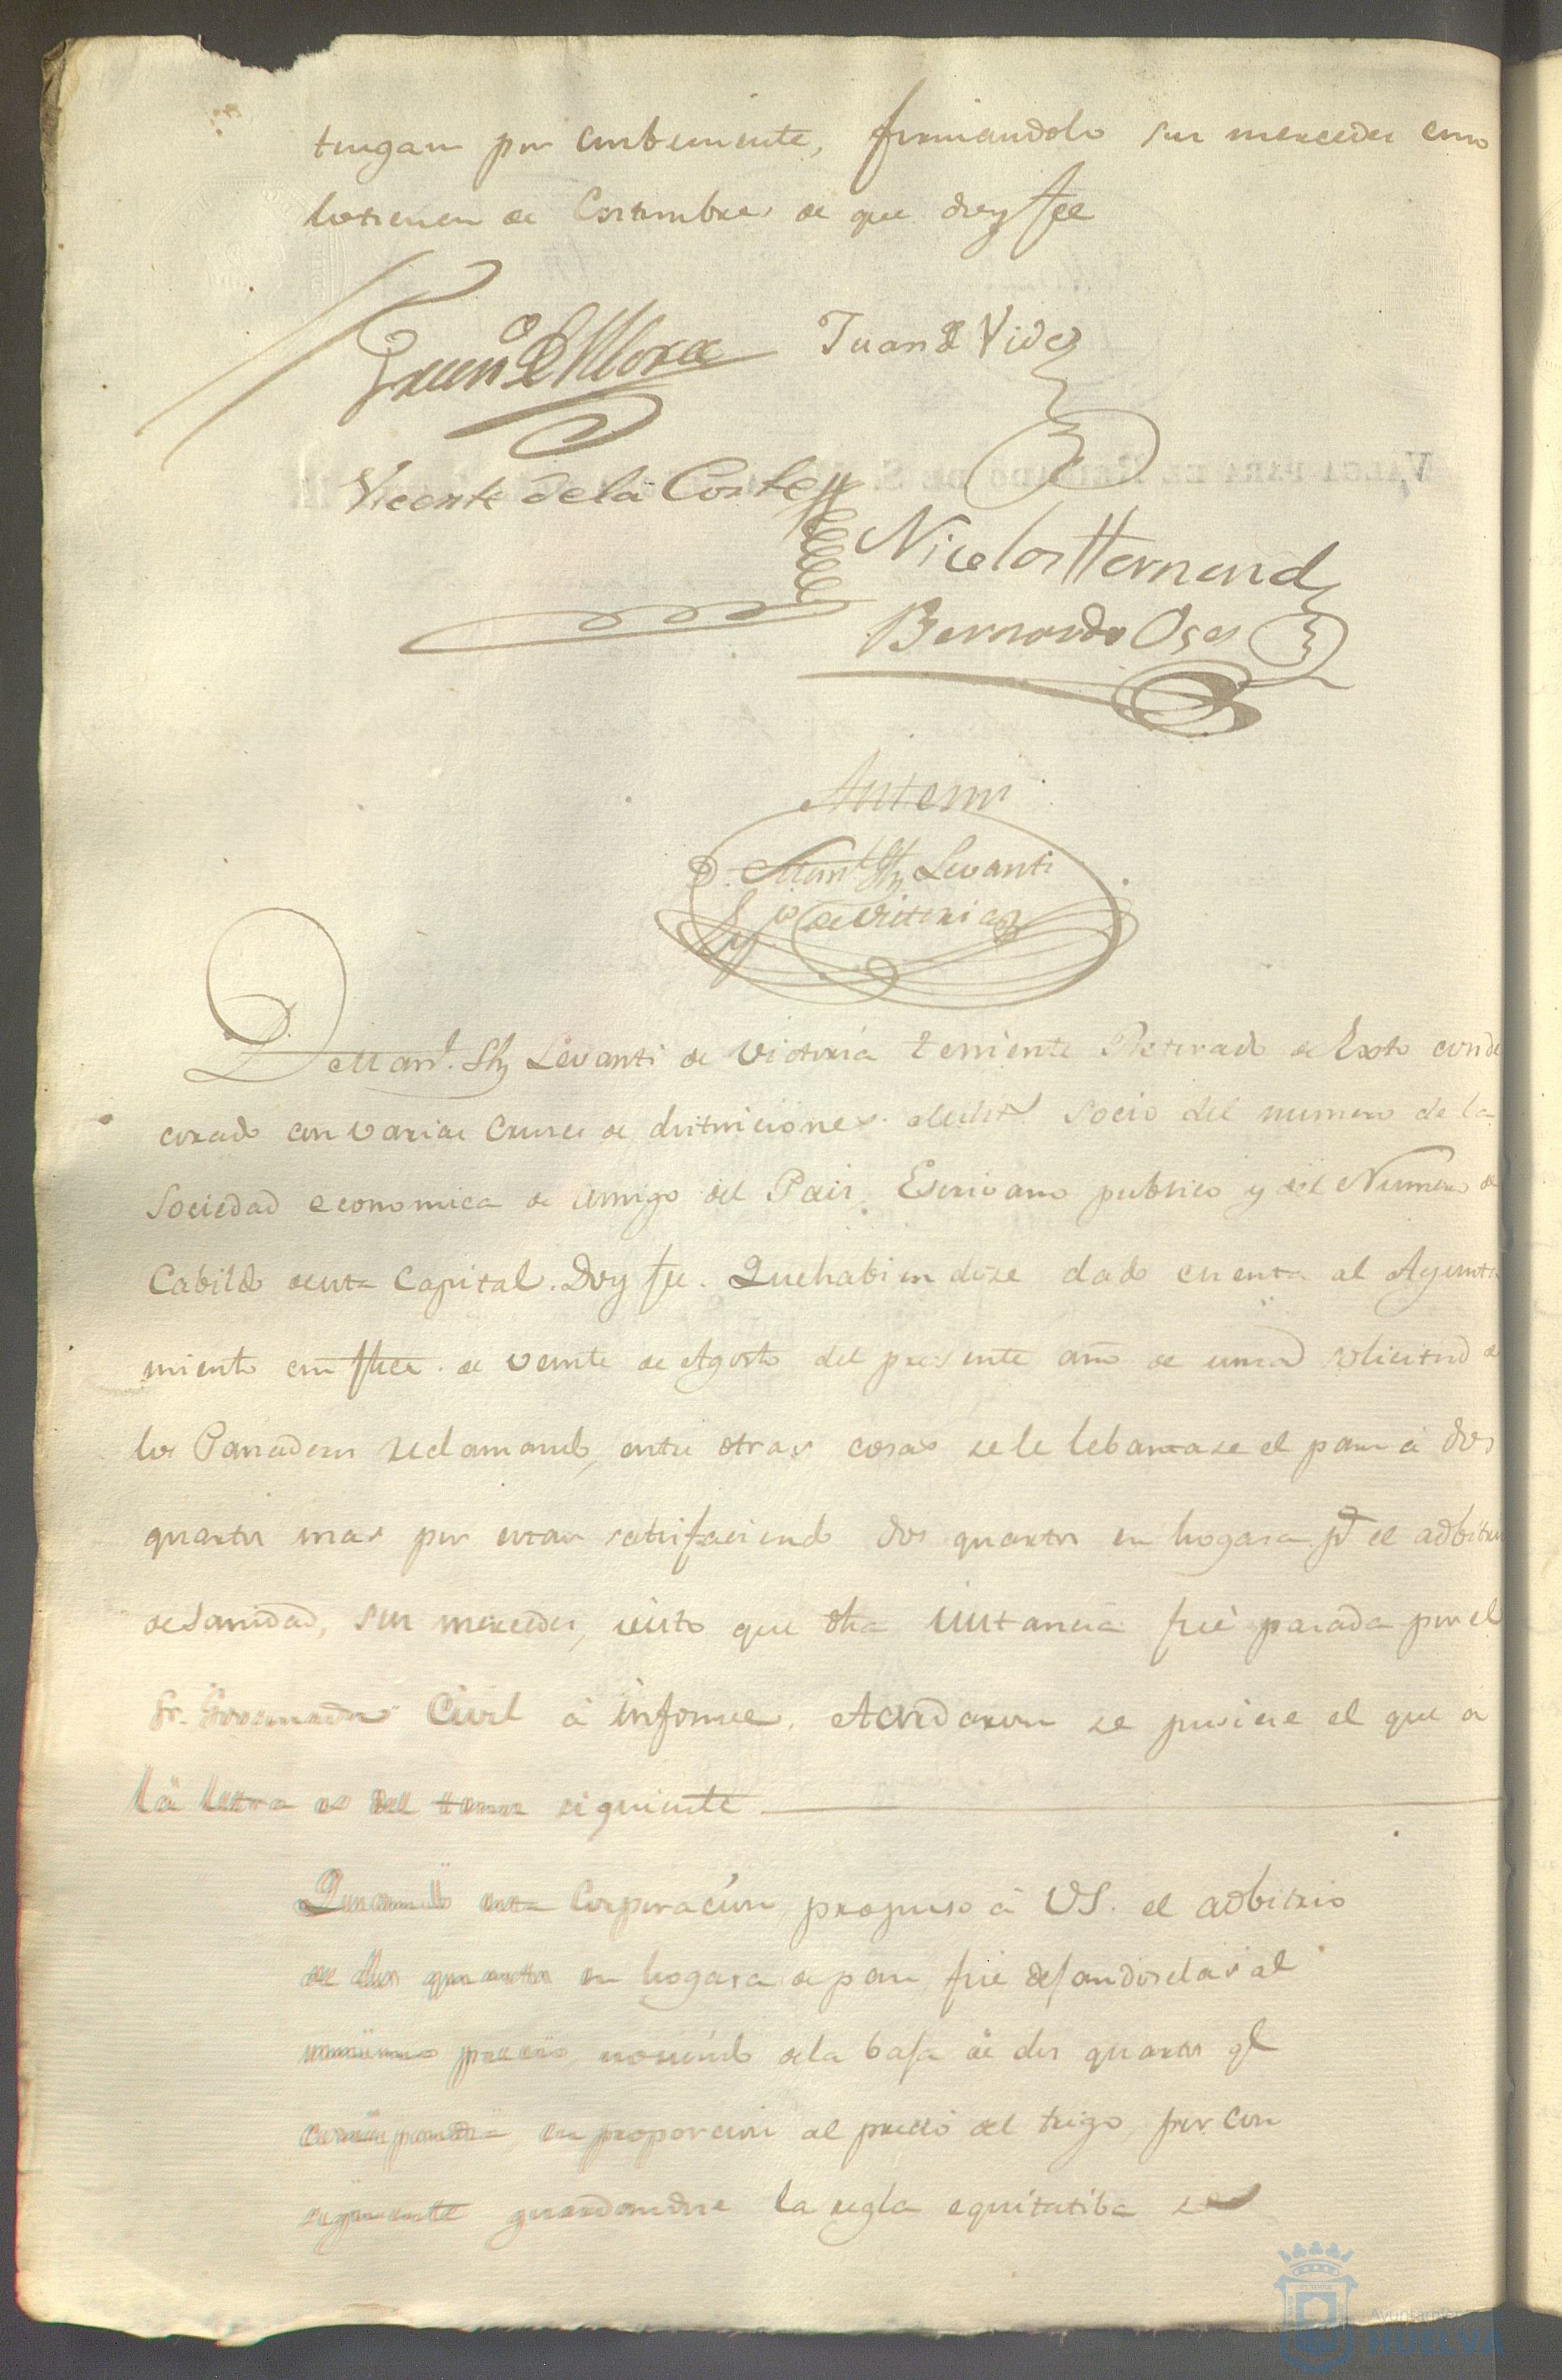 tengan por combeniente, firmandolo sus mercedes como
lo tienen de Costumbre, de que doy fee
Juan de Vides
Vicente de la Corte
Nicolas Hernand
Bernardo Oses
Antemi
Man.l Sz Levanti
de Victoria
D.n Man.l Sz Levanti de Victoria Teniente Retirado de Exto conde
corado con varias Cruces de distinciones, Socio del numero de la
Sociedad economica de Amigo del Pais, Escrivano publico y del Numero de
Cabildo de esta Capital. Doy fee. Que habiendose dado cuenta al Ayunta
miento en de veinte de Agosto del presente año de una solicitud de
los Panaderos reclamando, entre otras cosas se le lebantase el pan à dos
quartos mas por estar satisfaciendo dos quartos en hogasa p.r el adbitrio
de Sanidad, sus mercedes, visto que dha instancia fué pasada por el
Sr. Governador Civil à informe. Acordaron se pusiese el que a
la letra es del tenor siguiente
Quando esta Corporacion propuso à VS. el adbitrio
de dos quartos en hogasa de pan, fué dejandoselas al
mismo precio, de la baja de dos quartos q.e
correspondia en proporcion al precio del trigo, por con
siguiente guardandose la regla equitatiba se
VALGA PARA EL REYNADO DE S.
Ayuntamiento
HUELVA